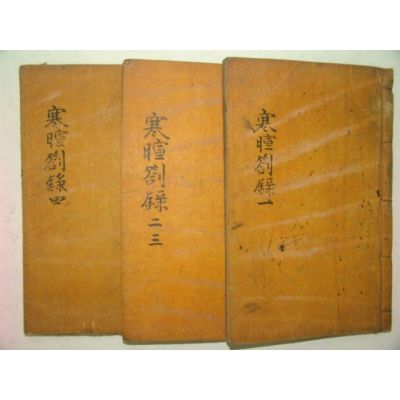 寒暄劄錄一
寒暄劄錄
二三
寒暄劄錄四